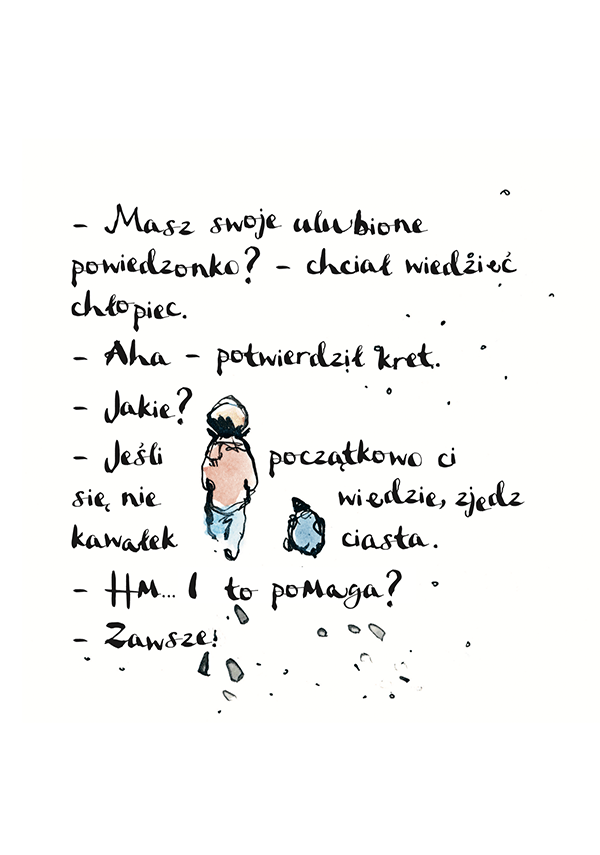 - Masz swoje ulubione
powiedzonko? - chciał wiedzieć
chłopiec.
- Aha - potwierdził kret.
- Jakie?
- Jeśli początkowo ci
się nie wiedzie, zjedz
kawałek ciasta.
- Hm... I to pomaga?
- Zawsze!